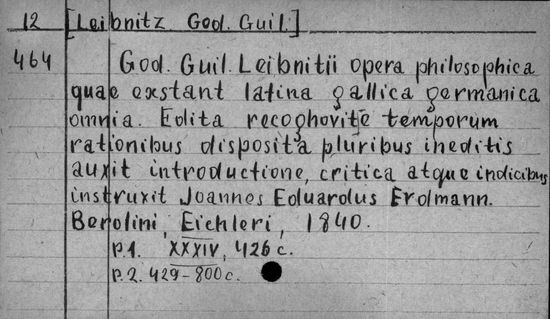 12 [Leibnitz God. Guil.]
464 God. Guil. Leibnitii opera philosophica
quae exstant latina gallica germanica
omnia. Edita recoghovite temporum
rationibus disposita pluribus ineditis
auxit introductione, critica atque indicibus
instruxit Joannes Eduardus Erdmann.
Berolini, Eichleri, 1840.
p.1. XXXIV, 426 c.
p.2. 429-800 c.